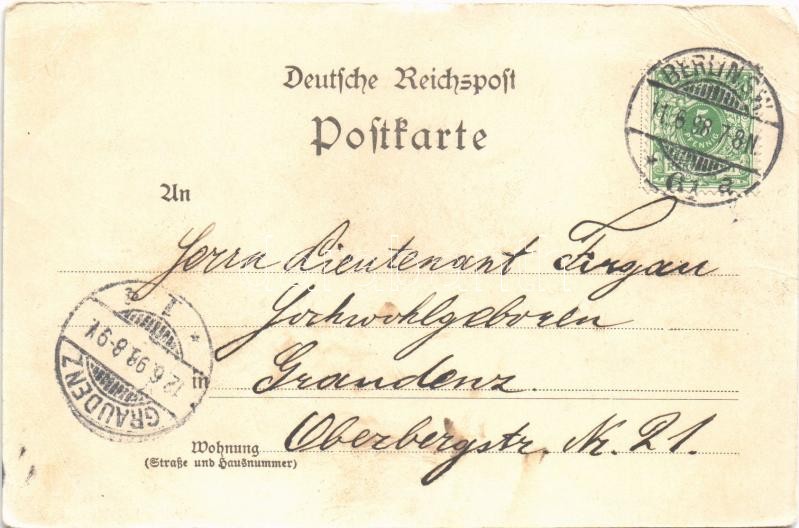 Deutsche Reichspost
Postkarte
BERLIN S.W.
11.6.98.7-8N.
* 61 a
5
PFENNIG
An
Herrn Lieutenant Firgau
Hochwohlgeboren
in Graudenz.
Wohnung Oberbergstr. Nr. 21.
(Straße und Hausnummer)
GRAUDENZ
12.6.98.8-9V.
* 1 a